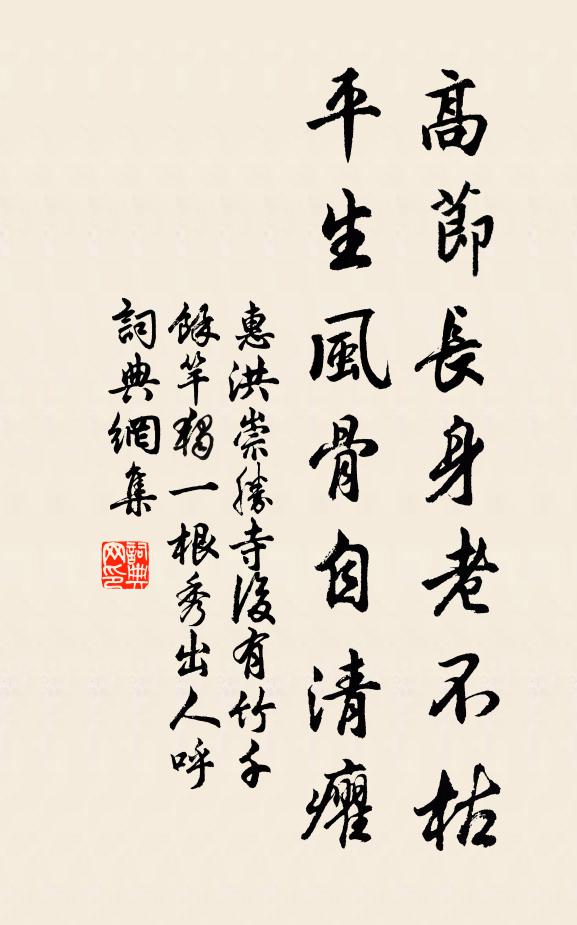 高節長身老不枯
平生風骨自清癯
惠洪崇勝寺後有竹千
餘竿獨一根秀出人呼
詞典網集
詞典
网印